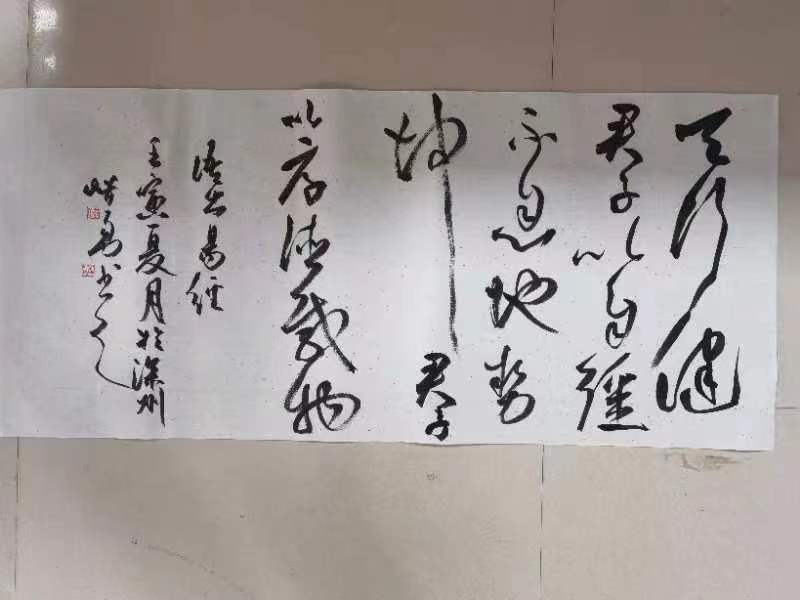 天行健
君子以自强
不息地势
坤君子
以厚德载物
语出易经
壬寅夏月於深圳
勇书之